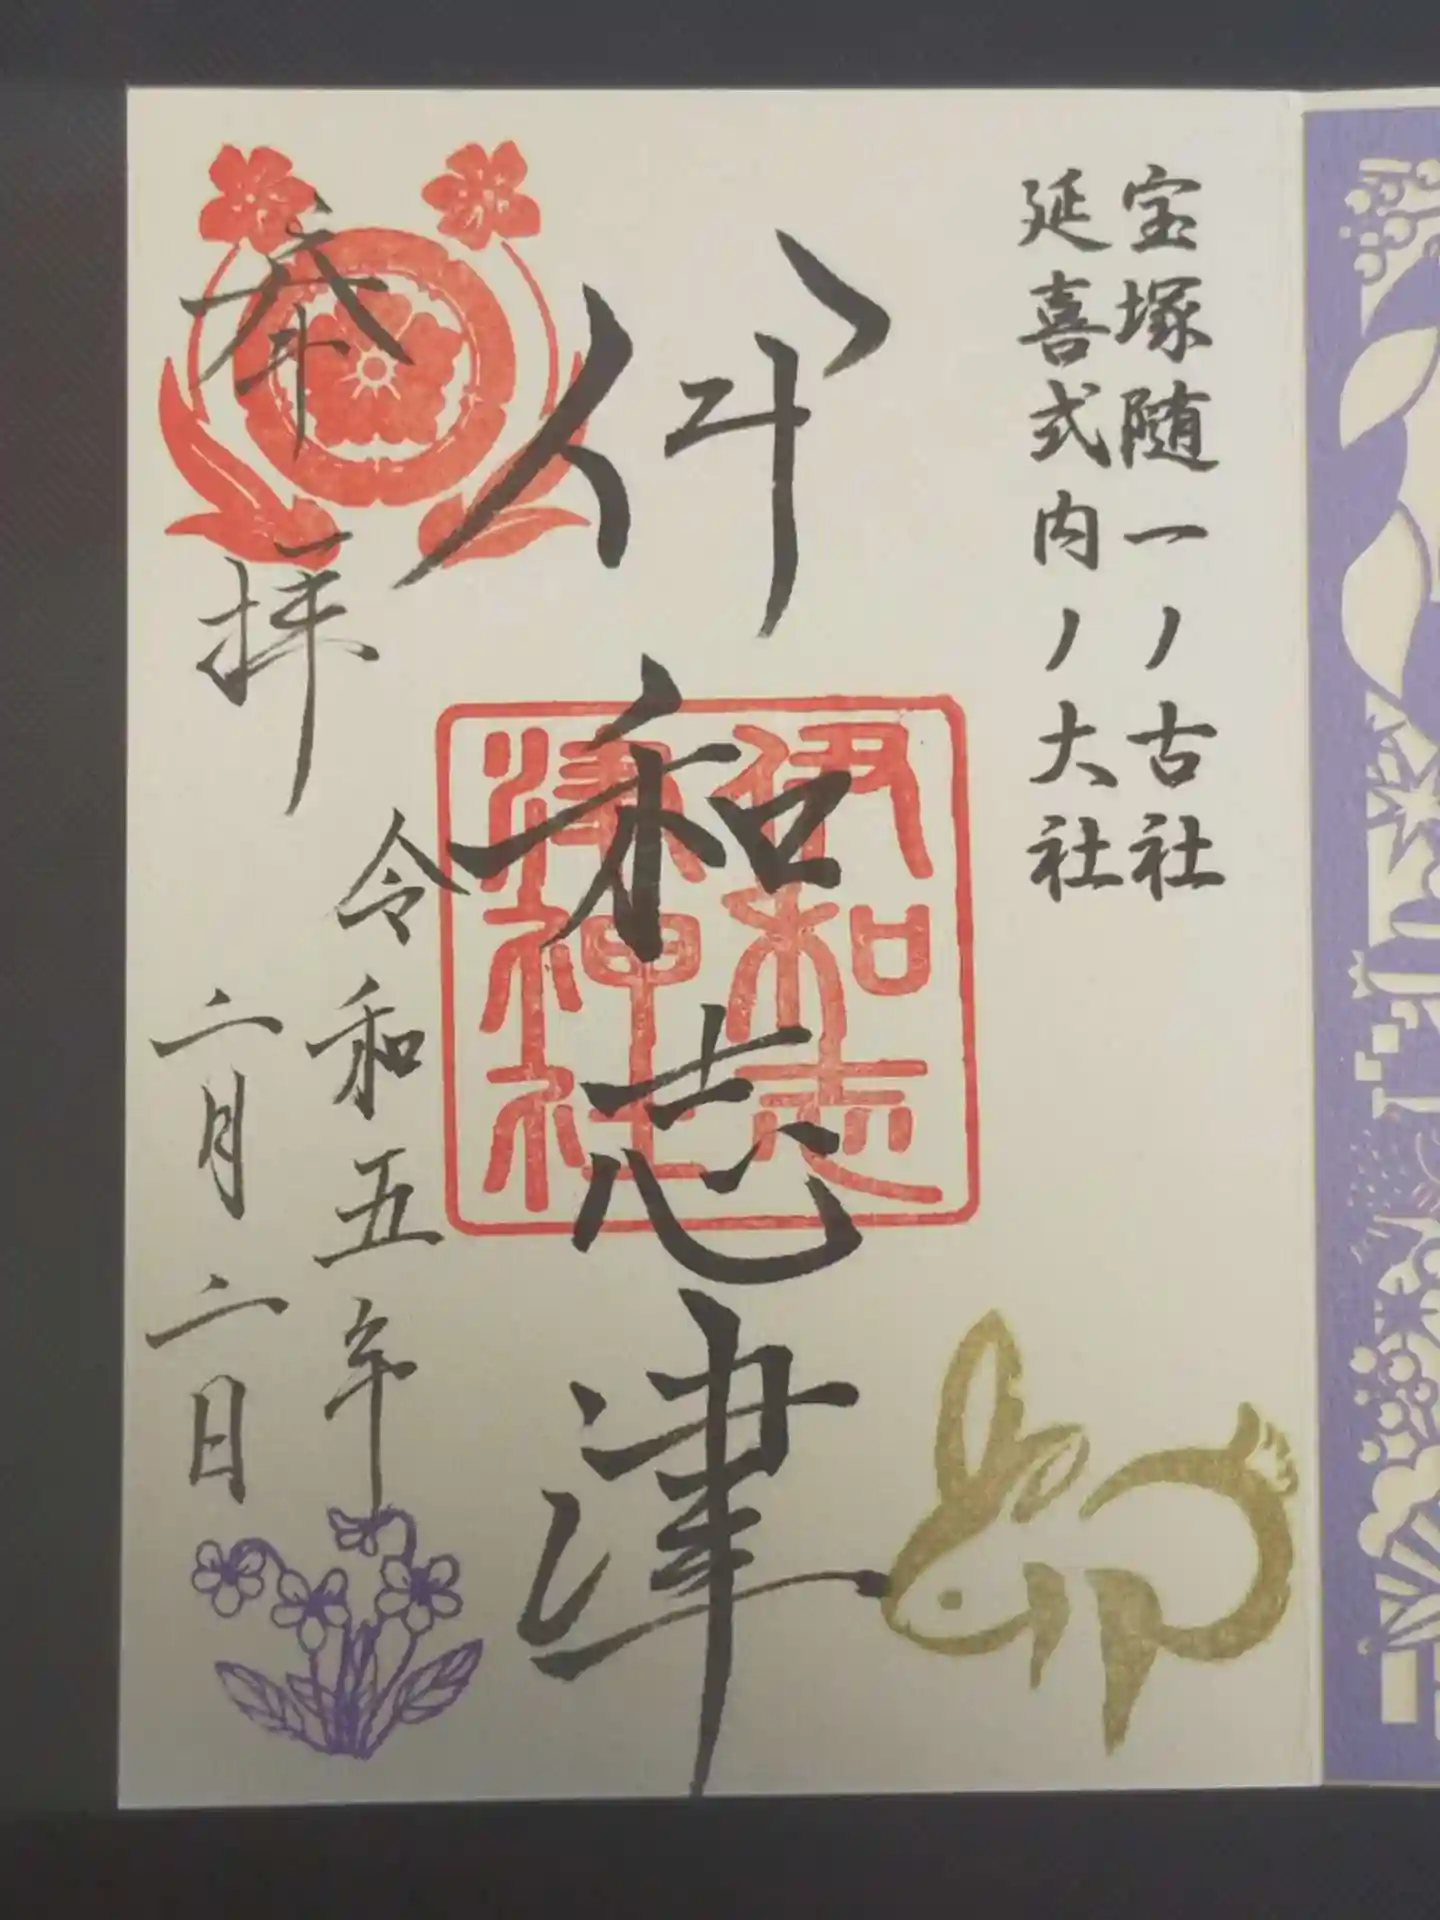 宝塚随一ノ古社
延喜式内ノ大社
伊和志津
伊和志
津神社
奉拝
令和五年
二月二日
卯